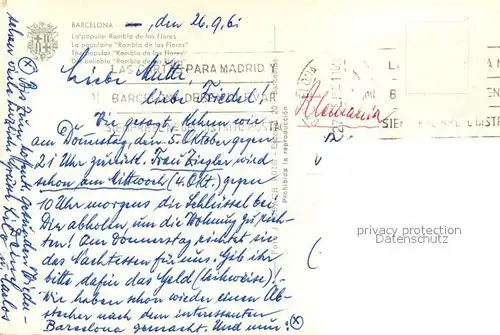 BARCELONA
La popular Rambla de las Flores
La populaire "Rambla de las Flores"
The popular "Rambla de las Flores"
Die beliebte "Rambla de las Flores"
den 26.9.61
LAS CARTAS PARA MADRID Y
BARCELONA DEBEN LLEVAR
SIEMPRE EL Nº DISTRITO POSTAL
Alemania
Liebe Mutti,
liebe Friedel!
Wie gesagt, kehren wir
am Donnerstag, den 5. Oktober gegen
21 Uhr zurück. Frau Ziegler wird
schon am Mittwoch (4. Okt.) gegen
10 Uhr morgens die Schlüssel bei
Dir abholen, um die Wohnung zu rich-
ten! Am Donnerstag richtet sie
das Nachtessen für uns. Gib ihr
bitte dafür das Geld (leihweise)!
Wir haben schon wieder einen Ab-
stecher nach dem interessanten
Barcelona gemacht. Und nun:
Bis zum hoffentl. gesunden Wieder-
sehen viele herzliche Grüsse
u. Carlos
Prohibida la reproducción
privacy protection
Datenschutz